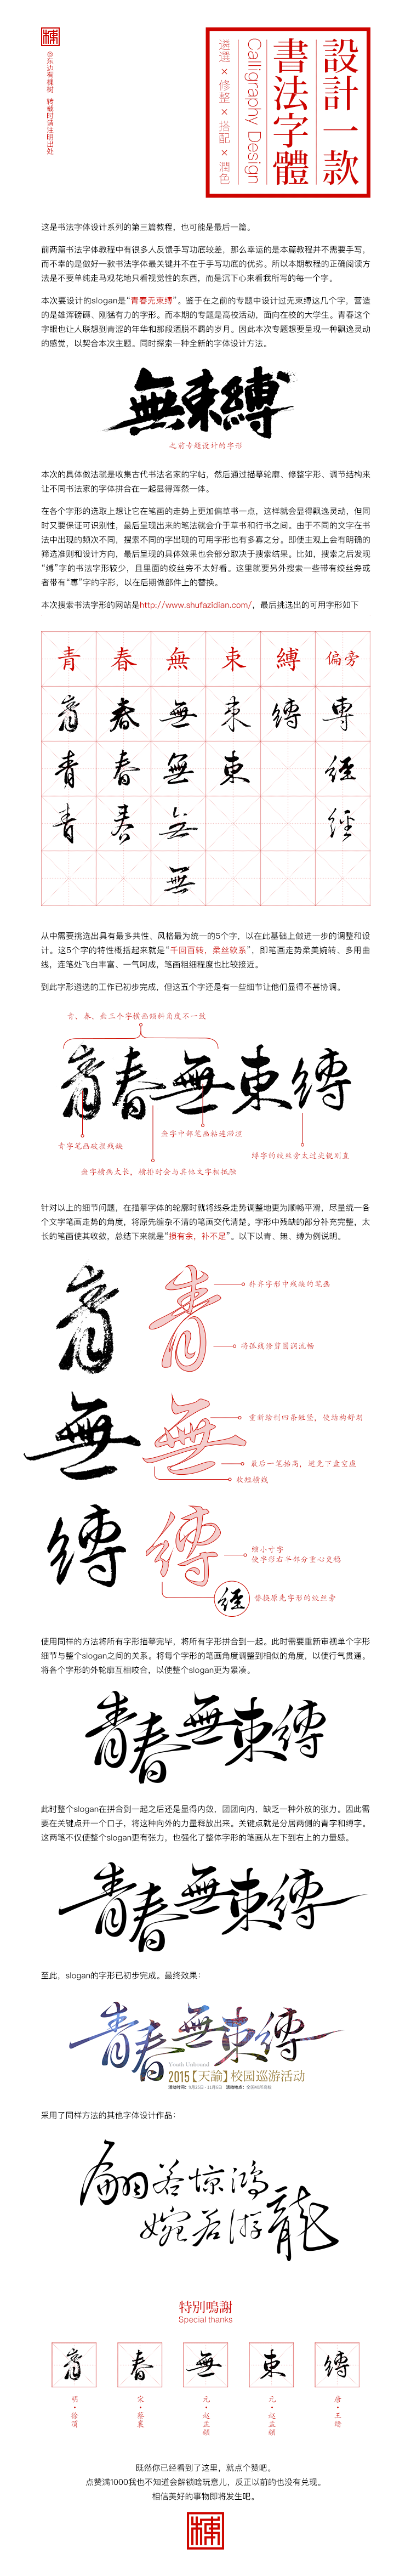 棟
@东边有棟树 转载时请注明出处
設計一款
書法字體
Calligraphy Design
遴選 × 修整 × 搭配 × 潤色
这是书法字体设计系列的第三篇教程，也可能是最后一篇。
前两篇书法字体教程中有很多人反馈手写功底较差，那么幸运的是本篇教程并不需要手写，
而不幸的是做好一款书法字体最关键并不在于手写功底的优劣。所以本期教程的正确阅读方
法是不要单纯走马观花地只看视觉性的东西，而是沉下心来看我所写的每一个字。
本次要设计的slogan是“青春无束缚”。鉴于在之前的专题中设计过无束缚这几个字，营造
的是雄浑磅礴、刚猛有力的字形。而本期的专题是高校活动，面向在校的大学生。青春这个
字眼也让人联想到青涩的年华和那段洒脱不羁的岁月。因此本次专题想要呈现一种飘逸灵动
的感觉，以契合本次主题。同时探索一种全新的字体设计方法。
無束縛
之前专题设计的字形
本次的具体做法就是收集古代书法名家的字帖，然后通过描摹轮廓、修整字形、调节结构来
让不同书法家的字体拼合在一起显得浑然一体。
在各个字形的选取上想让它在笔画的走势上更加偏草书一点，这样就会显得飘逸灵动，但同
时又要保证可识别性，最后呈现出来的笔法就会介于草书和行书之间。由于不同的文字在书
法中出现的频次不同，搜索不同的字出现的可用字形也有多寡之分。即使主观上会有明确的
筛选准则和设计方向，最后呈现的具体效果也会部分取决于搜索结果。比如，搜索之后发现
“縛”字的书法字形较少，且里面的绞丝旁不太好看。这里就要另外搜索一些带有绞丝旁或
者带有“専”字的字形，以在后期做部件上的替换。
本次搜索书法字形的网站是http://www.shufazidian.com/，最后挑选出的可用字形如下
青 春 無 束 縛 偏旁
青 春 無 束 縛 専
青 春 無 束 經
青 春 無 經
無
从中需要挑选出具有最多共性、风格最为统一的5个字，以在此基础上做进一步的调整和设
计。这5个字的特性概括起来就是“千回百转，柔丝软系”，即笔画走势柔美婉转、多用曲
线，连笔处飞白丰富、一气呵成，笔画粗细程度也比较接近。
到此字形遴选的工作已初步完成，但这五个字还是有一些细节让他们显得不甚协调。
青、春、無三个字横画倾斜角度不一致
青春無束縛
無字中部笔画粘连滞涩
青字笔画破损残缺
縛字的绞丝旁太过尖锐刚直
無字横画太长，横排时会与其他文字相抵触
针对以上的细节问题，在描摹字体的轮廓时就将线条走势调整地更为顺畅平滑，尽量统一各
个文字笔画走势的角度，将原先缠杂不清的笔画交代清楚。字形中残缺的部分补充完整，太
长的笔画使其收敛，总结下来就是“损有余，补不足”。以下以青、無、縛为例说明。
青 青
补齐字形中残缺的笔画
将弧线修剪圆润流畅
無 無
重新绘制四条短竖，使结构舒朗
最后一笔抬高，避免下盘空虚
收短横线
縛 縛
缩小寸字
使字形右半部分重心更稳
經
替换原先字形的绞丝旁
使用同样的方法将所有字形描摹完毕，将所有字形拼合到一起。此时需要重新审视单个字形
细节与整个slogan之间的关系。将每个字形的笔画角度调整到相似的角度，以使行气贯通。
将各个字形的外轮廓互相咬合，以使整个slogan更为紧凑。
青春無束縛
此时整个slogan在拼合到一起之后还是显得内敛，团团向内，缺乏一种外放的张力。因此需
要在关键点开一个口子，将这种向外的力量释放出来。关键点就是分居两侧的青字和縛字。
这两笔不仅使整个slogan更有张力，也强化了整体字形的笔画从左下到右上的力量感。
青春無束縛
至此，slogan的字形已初步完成。最终效果：
青春無束縛
Youth Unbound
2015【天諭】校园巡游活动
活动时间：9月25日 - 11月6日 活动地点：全国40所高校
采用了同样方法的其他字体设计作品：
翩若惊鸿
婉若游龍
特別鳴謝
Special thanks
青 春 無 束 縛
明·徐渭
宋·蔡襄
元·赵孟頫
元·赵孟頫
唐·王绪
既然你已经看到了这里，就点个赞吧。
点赞满1000我也不知道会解锁啥玩意儿，反正以前的也没有兑现。
相信美好的事物即将发生吧。
棟